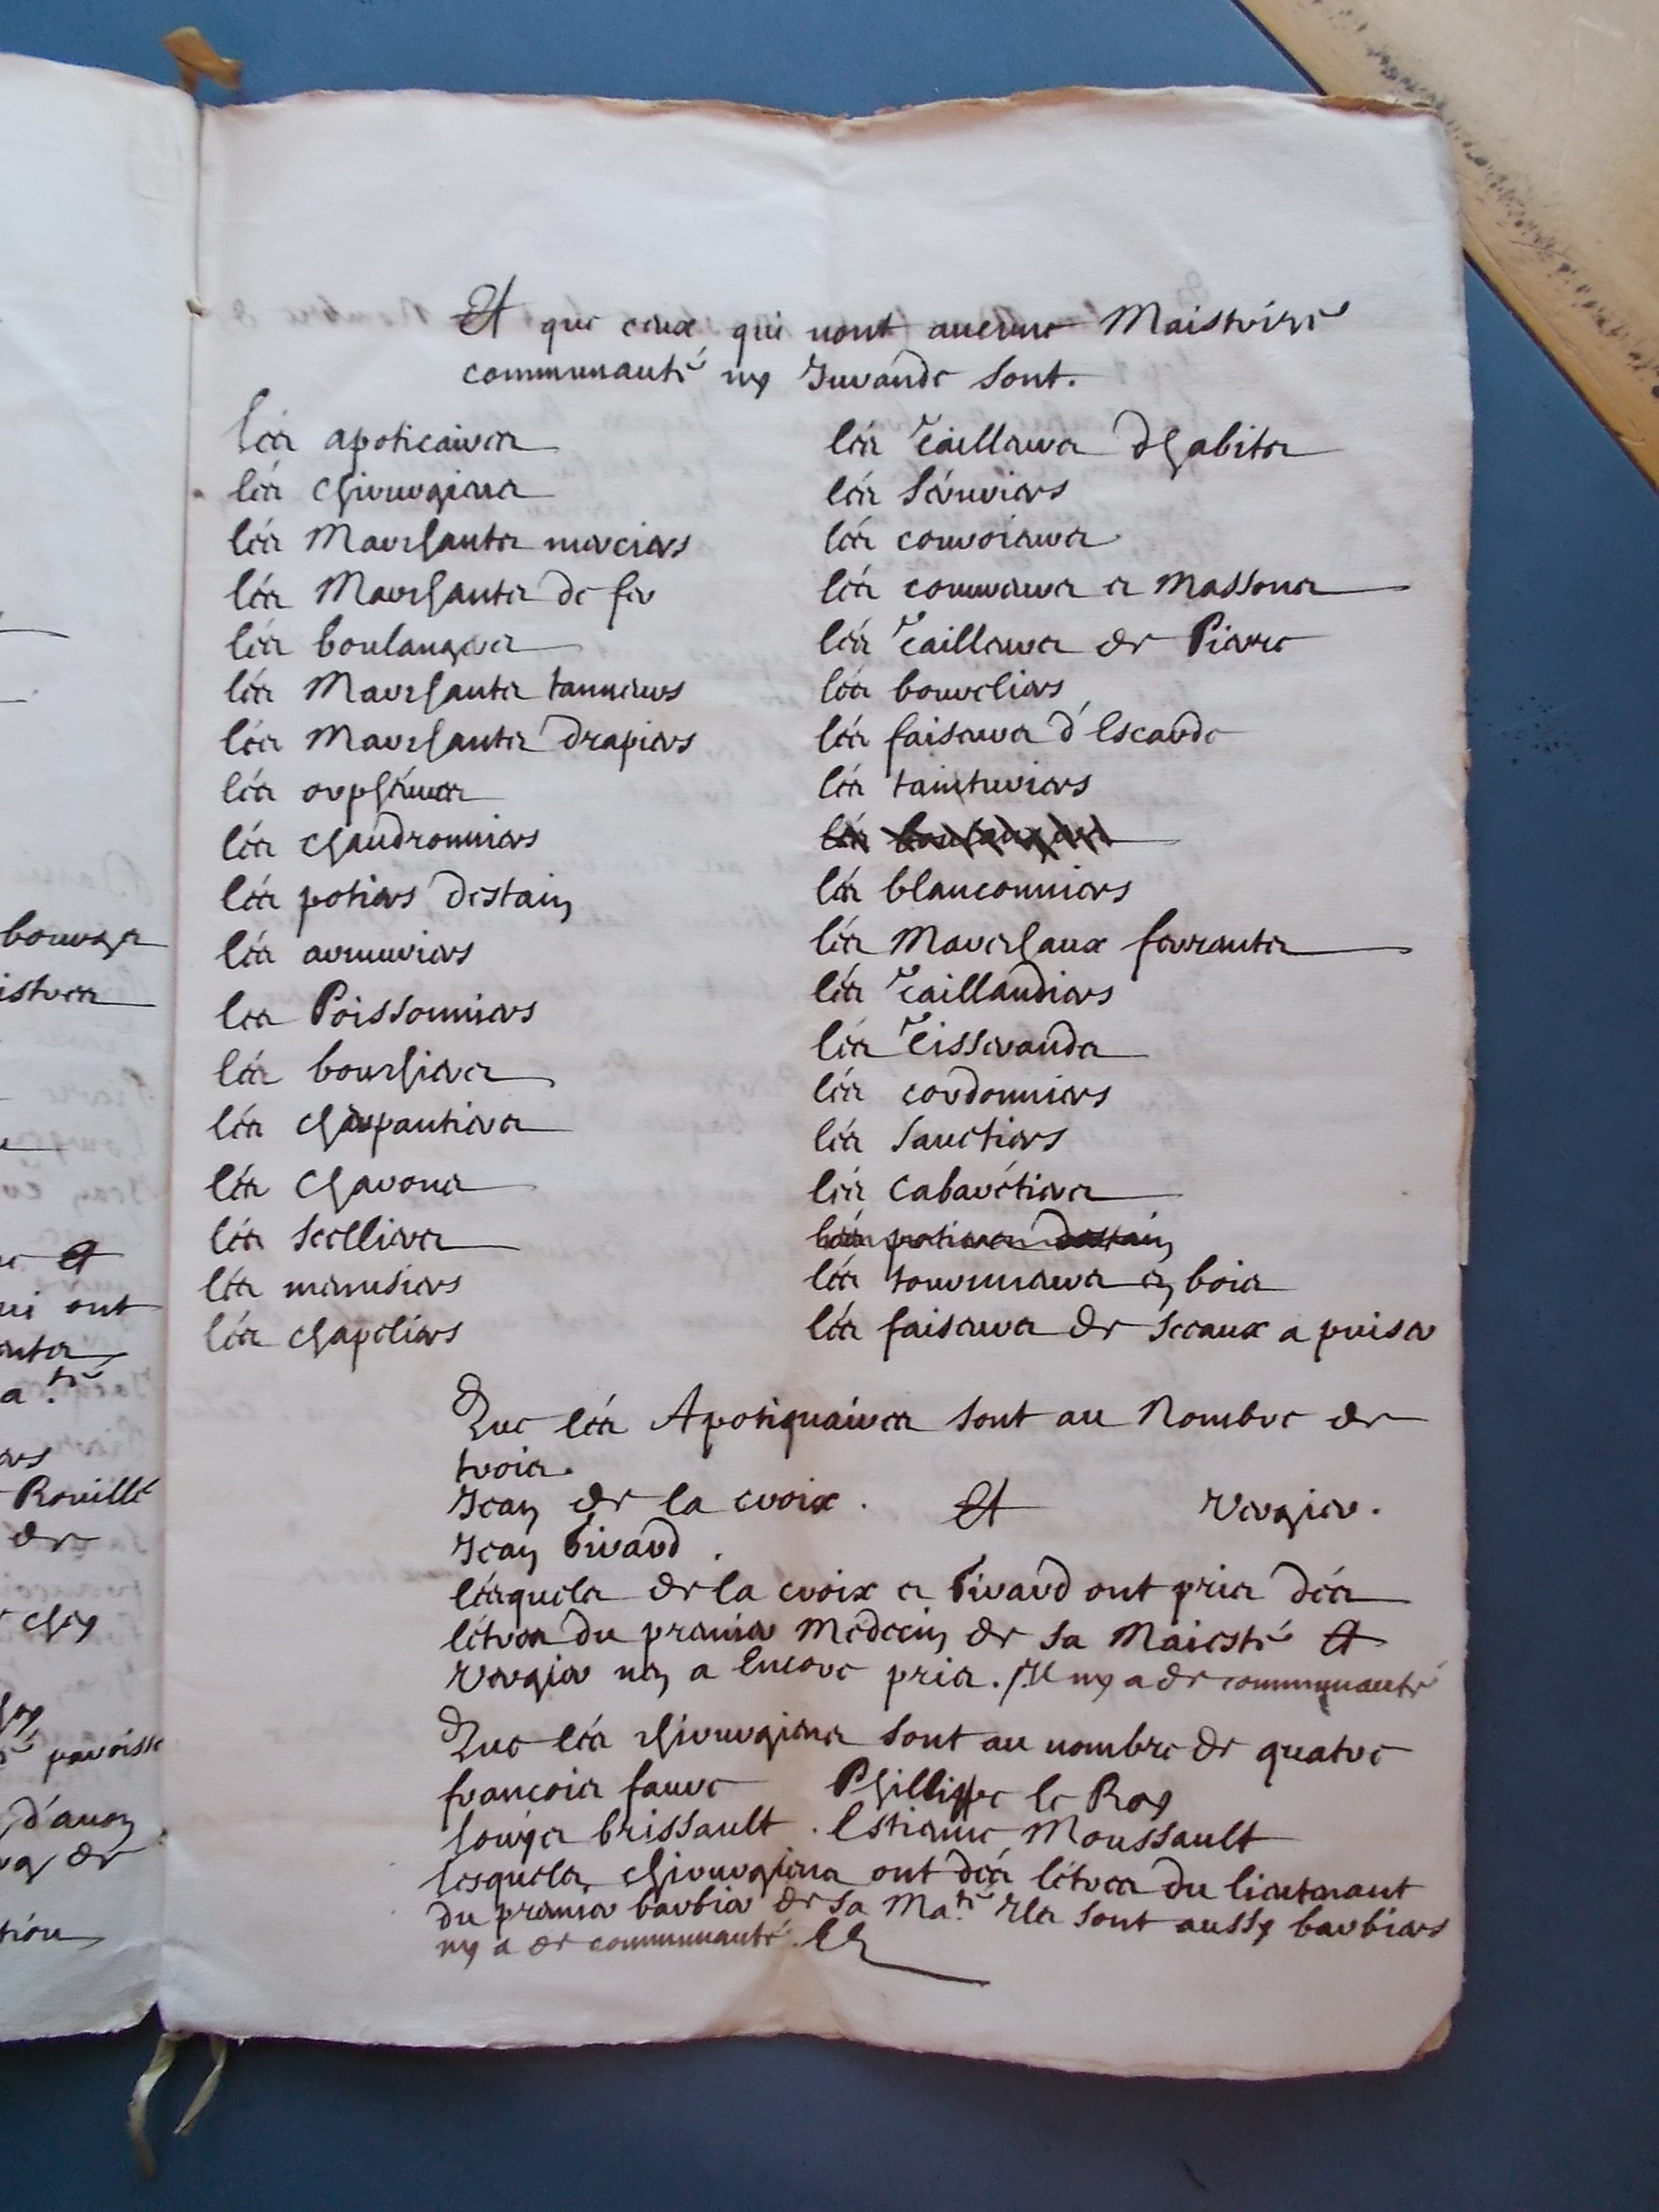 Et que ceux qui nont aucune Maistrise
communauté ny Jurande sont.
Les apoticaires
Les chirurgiens
Les Marchants merciers
Les Marchants de fer
Les boulangers
Les Marchants tanneurs
Les Marchants drapiers
Les orpheures
Les chaudronniers
Les potiers destain
Les armuriers
Les Poissonniers
Les bourhiers
Les charpantiers
Les charons
Les Scelliers
Les menusiers
Les chapeliers
Les Tailleurs dhabits
Les Séruriers
Les couroieurs
Les couvreurs et Massons
Les Tailleurs de Pierre
Les boureliers
Les faiseurs d'Escarde
Les tainturiers
Les boulangers
Les blanconniers
Les Marechaux ferrants
Les Taillandiers
Les Tisserands
Les cordonniers
Les Sauetiers
Les Cabarétiers
Les potiers destain
Les tourneurs en bois
Les faiseurs de Seeaux a puiser
Que les Apotiquaires sont au Nombre de
trois.
Jean de la croix. Et Vergier.
Jean Pivard.
Lesquels de la croix et Pivard ont pris des
létres du premier Medecin de sa Maiesté Et
Vergier nen a Encore pris. Il ny a de communauté
Que les chirurgiens sont au nombre de quatre
francois faure Phillippe le Roy
Louys brissault. Estienne Moussault
Lesquels chirurgiens ont des létres du lieutenant
du premier barbier de sa Ma.té Ils sont aussy barbiers
ny a de communauté.
bourgs
istres
et
ui ont
ants
a.té
Rouillé
de
chez
paroisse
d'auon
de
tion